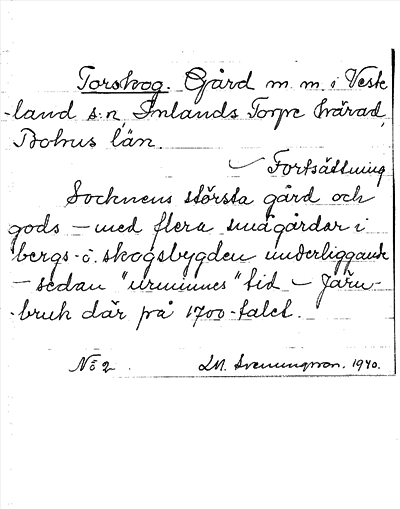 Torskog. Gård m. m. i Veste
-land s:n, Inlands Torpe härad,
Bohus län.
Fortsättning
Socknens största gård och
gods – med flera smågårdar i
bergs- o. skogsbygden underliggande
– sedan "urminnes" tid – Järn-
-bruk där på 1700-talet.
No 2. Sveningsson. 1940.